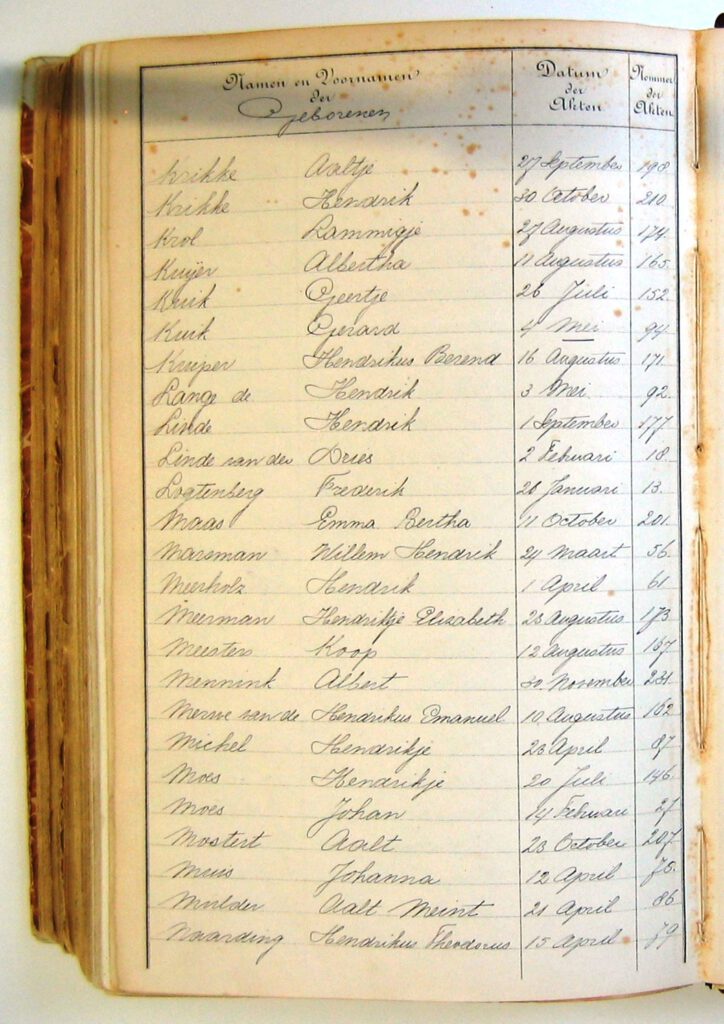 Namen en Voornamen der Geborenen Datum der Akten Nommer der Akten
Krikke Aaltje 27 September 198
Krikke Hendrik 30 October 210
Krol Lammigje 27 Augustus 174
Kuijer Albertha 11 Augustus 165
Kuik Geertje 26 Juli 152
Kuik Gerard 4 Mei 94
Kuiper Hendrikus Berend 16 Augustus 171
Lange de Hendrik 3 Mei 92
Linde Hendrik 1 September 177
Linde van der Dries 2 Februari 18
Logtenberg Frederik 26 Januari 13
Maas Emma Bertha 11 October 201
Marsman Willem Hendrik 24 Maart 56
Meerholz Hendrik 1 April 61
Meerman Hendrikje Elizabeth 23 Augustus 173
Meesters Koop 12 Augustus 167
Mennink Albert 30 November 231
Merwe van de Hendrikus Emanuel 10 Augustus 162
Michel Hendrikje 23 April 87
Moes Hendrikje 20 Juli 146
Moes Johan 14 Februari 27
Mostert Aalt 23 October 207
Meus Johanna 12 April 75
Mulder Aalt Meint 21 April 86
Naarding Hendrikus Theodorus 15 April 79